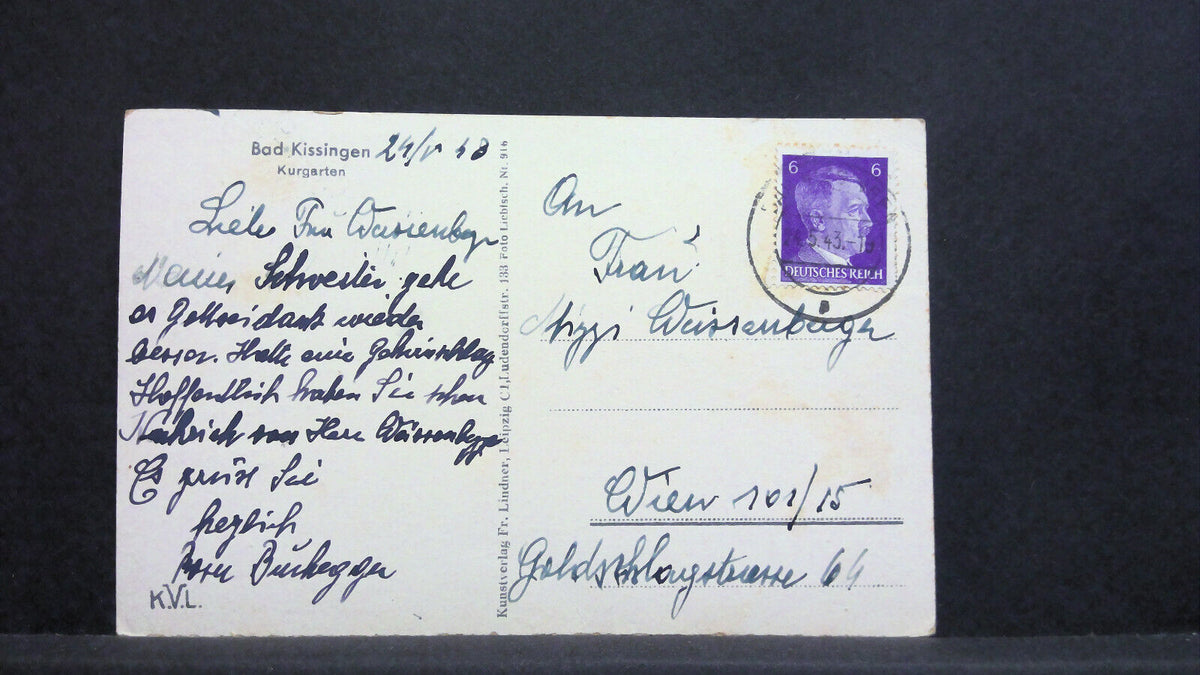 Bad Kissingen 24/V 43
Kurgarten
Liebe Frau Weissenbager
Meiner Schwester geht
es Gottseidank wieder
besser. Hatte eine Gehirnschlag
Hoffentlich haben Sie schon
Nachricht von Herr
Es grüsst Sie
herzlich
K.V.L.
Kunstverlag Fr. Lindner, Leipzig C1, Ludendorffstr. 133 Foto Liebisch. Nr. 916
6 6
24.5.43.-
DEUTSCHES REICH
An
Frau
Mizzi
Wien 101/15
Goldschlagstrasse 64